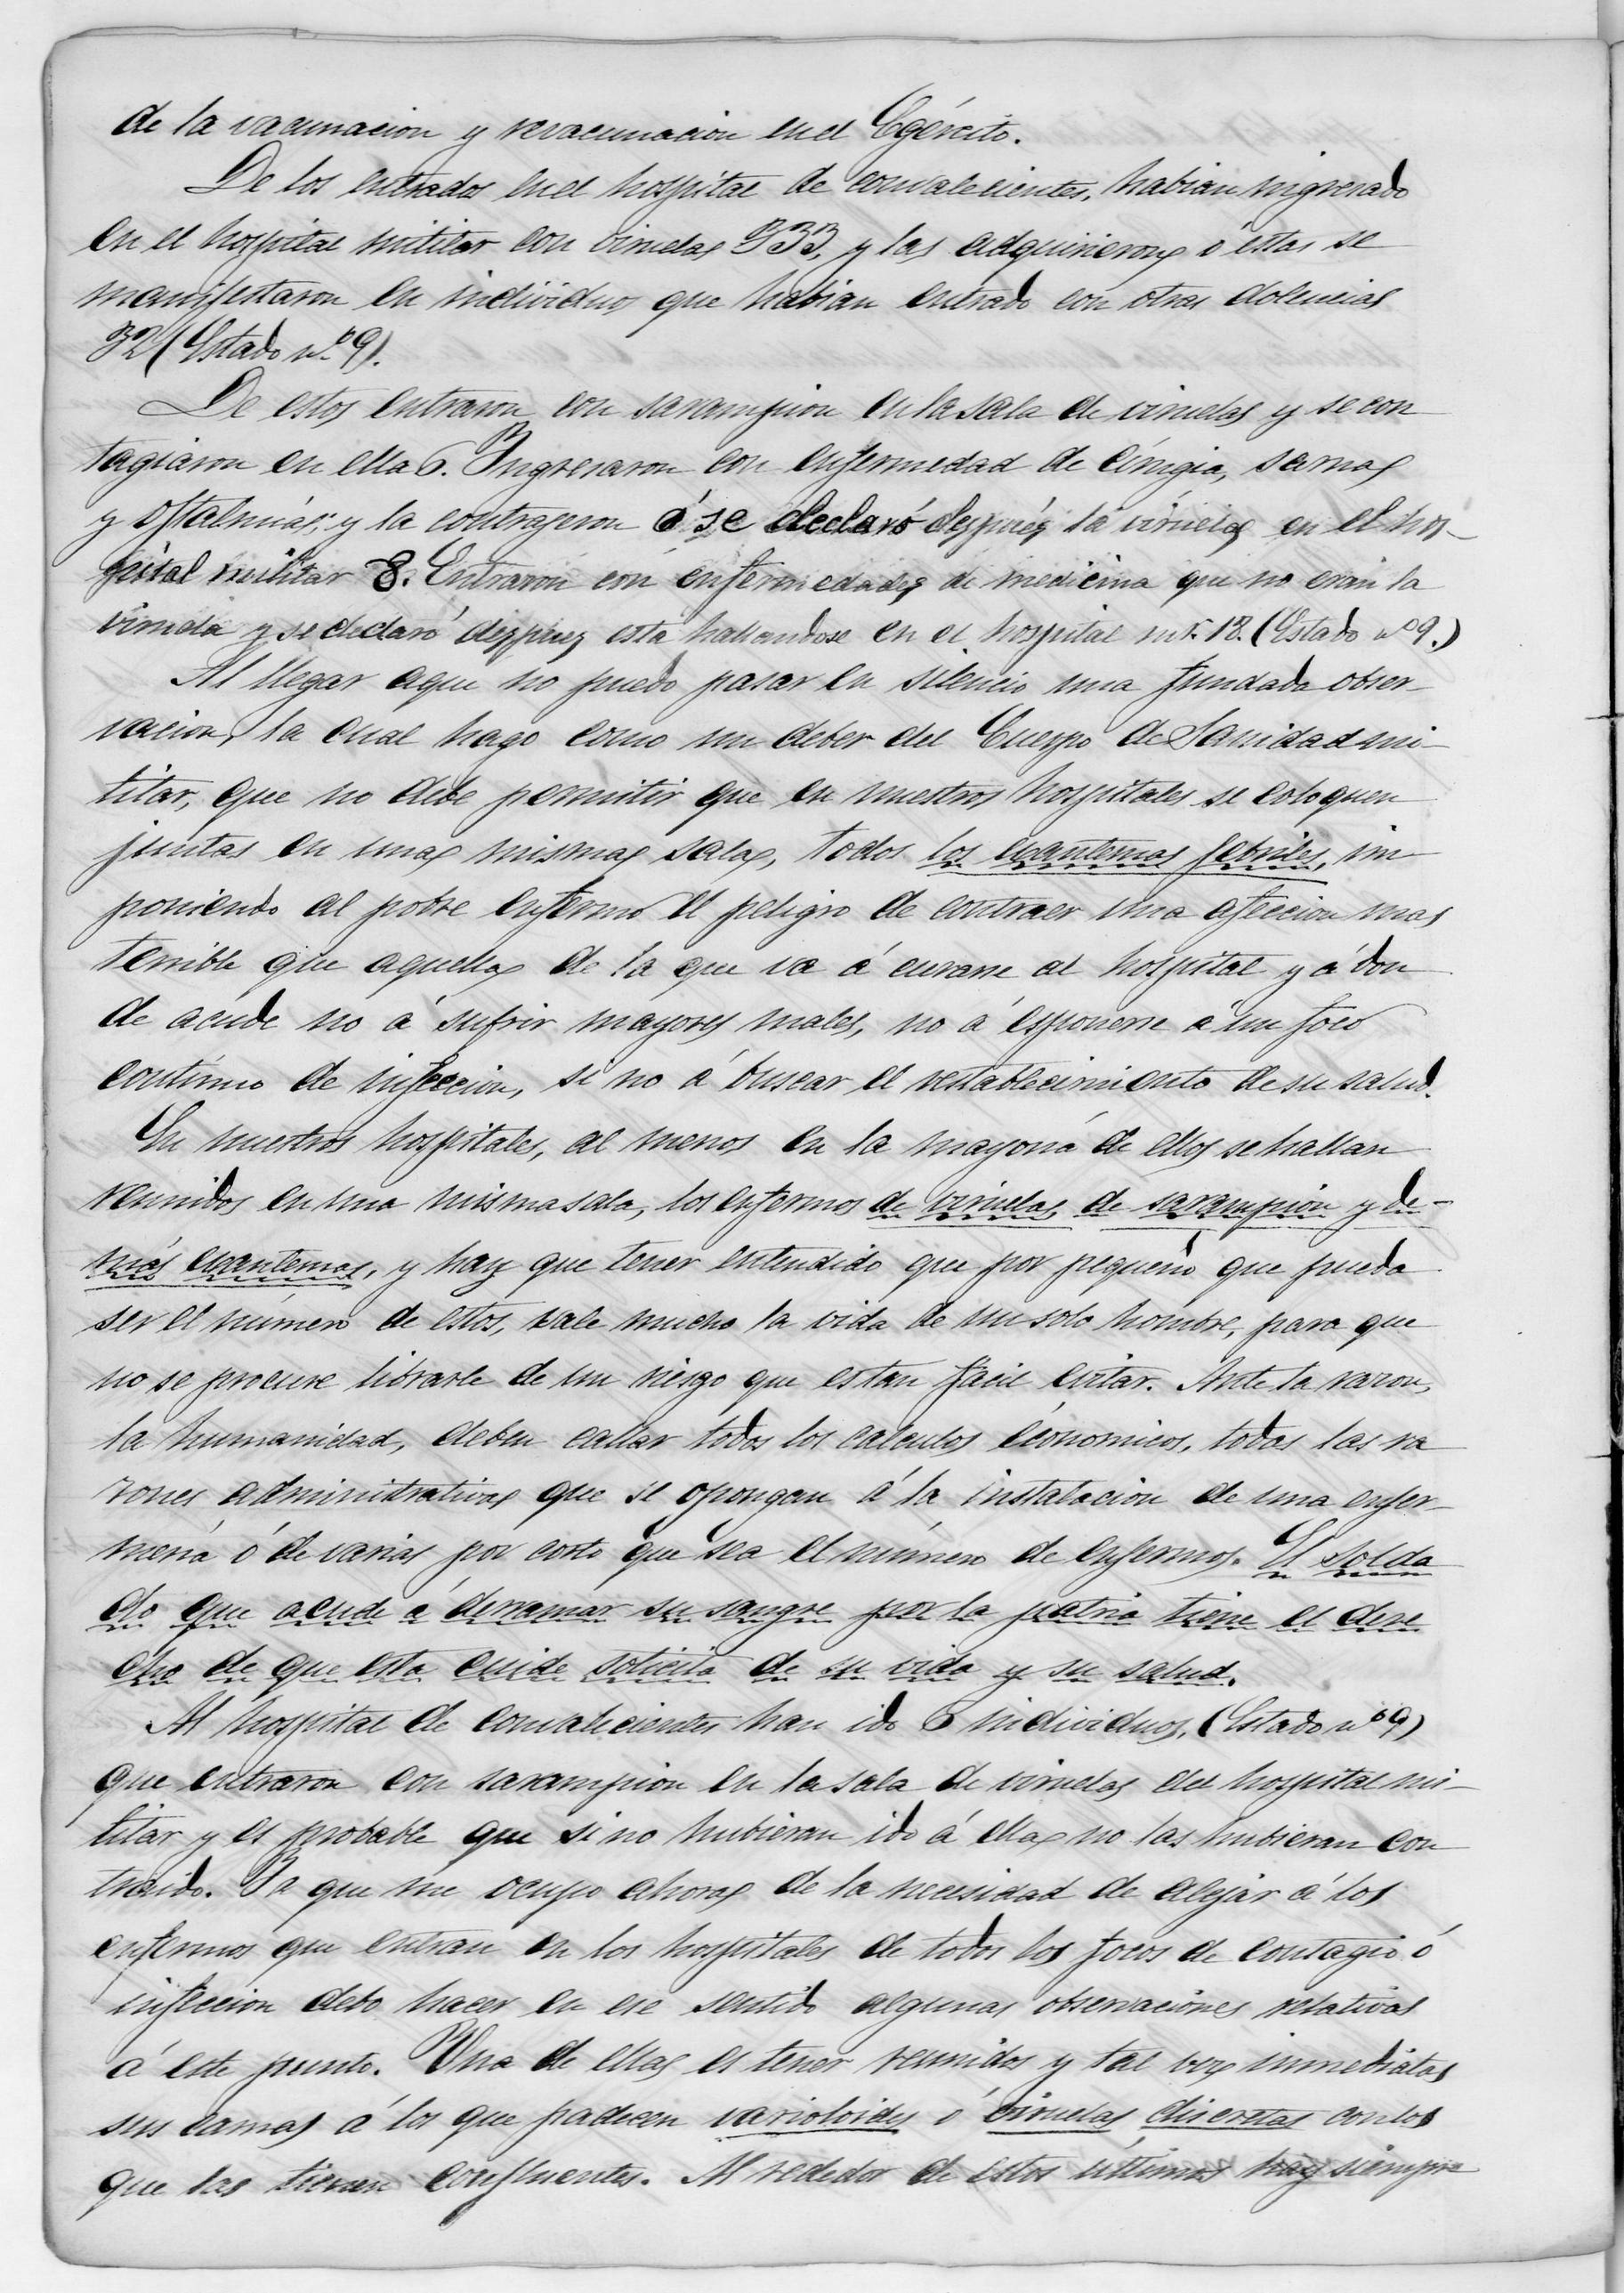 de la vacunacion y revacunacion en el Egército.
De los entrados en el hospital de convalecientes, habian ingresado
en el hospital militar con viruelas 333, y las adquirieron, ó estas se
manifestaron en individuos que habian entrado con otras dolencias
32 (Estado nº 9).
De estos entraron con sarampion en la sala de viruelas y se con
tagiaron en ella 6. Ingresaron con enfermedad de cirugia, sarna,
y oftalmias, y la contrageron ó se declaró despues la viruela, en el hos-
pital militar 8. Entraron con enfermedades de medicina que no eran la
viruela y se declaró despues esta hallandose en el hospital mr. 18. (Estado nº 9.)
Al llegar aqui no puedo pasar en silencio una fundada obser-
vacion, la cual hago como un deber del Cuerpo de Sanidad mi-
litar, que no debe permitir que en nuestros hospitales se coloquen
juntas en unas mismas salas, todos los exantemas febriles, im
poniendo al pobre enfermo el peligro de contraer una afeccion mas
terrible que aquella, de la que va á curarse al hospital y á don
de acude no á sufrir mayores males, no á esponerse á un foco
contínuo de infeccion, si no á buscar el restablecimiento de su salud.
En nuestros hospitales, al menos en la mayoría de ellos se hallan
reunidos en una misma sala, los enfermos de viruelas, de sarampion y de-
más exantemas, y hay que tener entendido que por pequeño que pueda
ser el número de estos, vale mucho la vida de un solo hombre, para que
no se procure librarle de un riesgo que es tan fácil evitar. Ante la razon,
la humanidad, deben callar todos los calculos económicos, todas las ra
zones administrativas que se opongan á la instalacion de una enfer-
mería ó de varias por corto que sea el número de enfermos. El solda
do que acude á derramar su sangre por la patria tiene el dere
cho de que esta cuide solicita de su vida y su salud.
Al hospital de convalecientes han ido 6 individuos, (Estado nº 9)
que entraron con sarampion en la sala de viruelas del hospital mi-
litar y es probable que si no hubieran ido á ella, no las hubieran con
traido. Ya que me ocupo ahora, de la necesidad de alejar á los
enfermos que entran en los hospitales de todos los focos de contagio ó
infeccion debo hacer en ese sentido algunas observaciones relativas
á este punto. Una de ellas es tener reunidos y tal vez inmediatas
sus camas á los que padecen varioloides ó viruelas discretas con los
que las tienen confluentes. Al rededor de estos últimos hay siempre